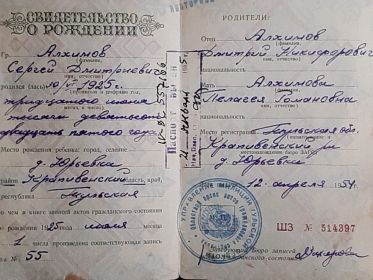 СВИДЕТЕЛЬСТВО
О РОЖДЕНИИ
Гр. Алхимов
(фамилия,
Сергей Дмитриевич
имя, отчество)
1925 г.
тридцатого июня
тысяча девятьсот
двадцать пятого года
Место рождения ребенка: город, селение
д. Юрьевка
район Крапивенский
область, край,
Тульская
о чем в книге записей актов гражданского состояния
о рождении 1925 года июля месяца
1 числа произведена соответствующая запись
за № 55
РОДИТЕЛИ:
Отец Алхимов
(фамилия,
Дмитрий Никифорович
имя, отчество)
национальность
Мать Алхимова
(фамилия,
Пелагея Романовна
имя, отчество)
национальность
Место регистрации Тульская обл.
Крапивенский р-н
д. Юрьевка
12 апреля 1954 г.
ШЗ № 514397
Паспорт выдан